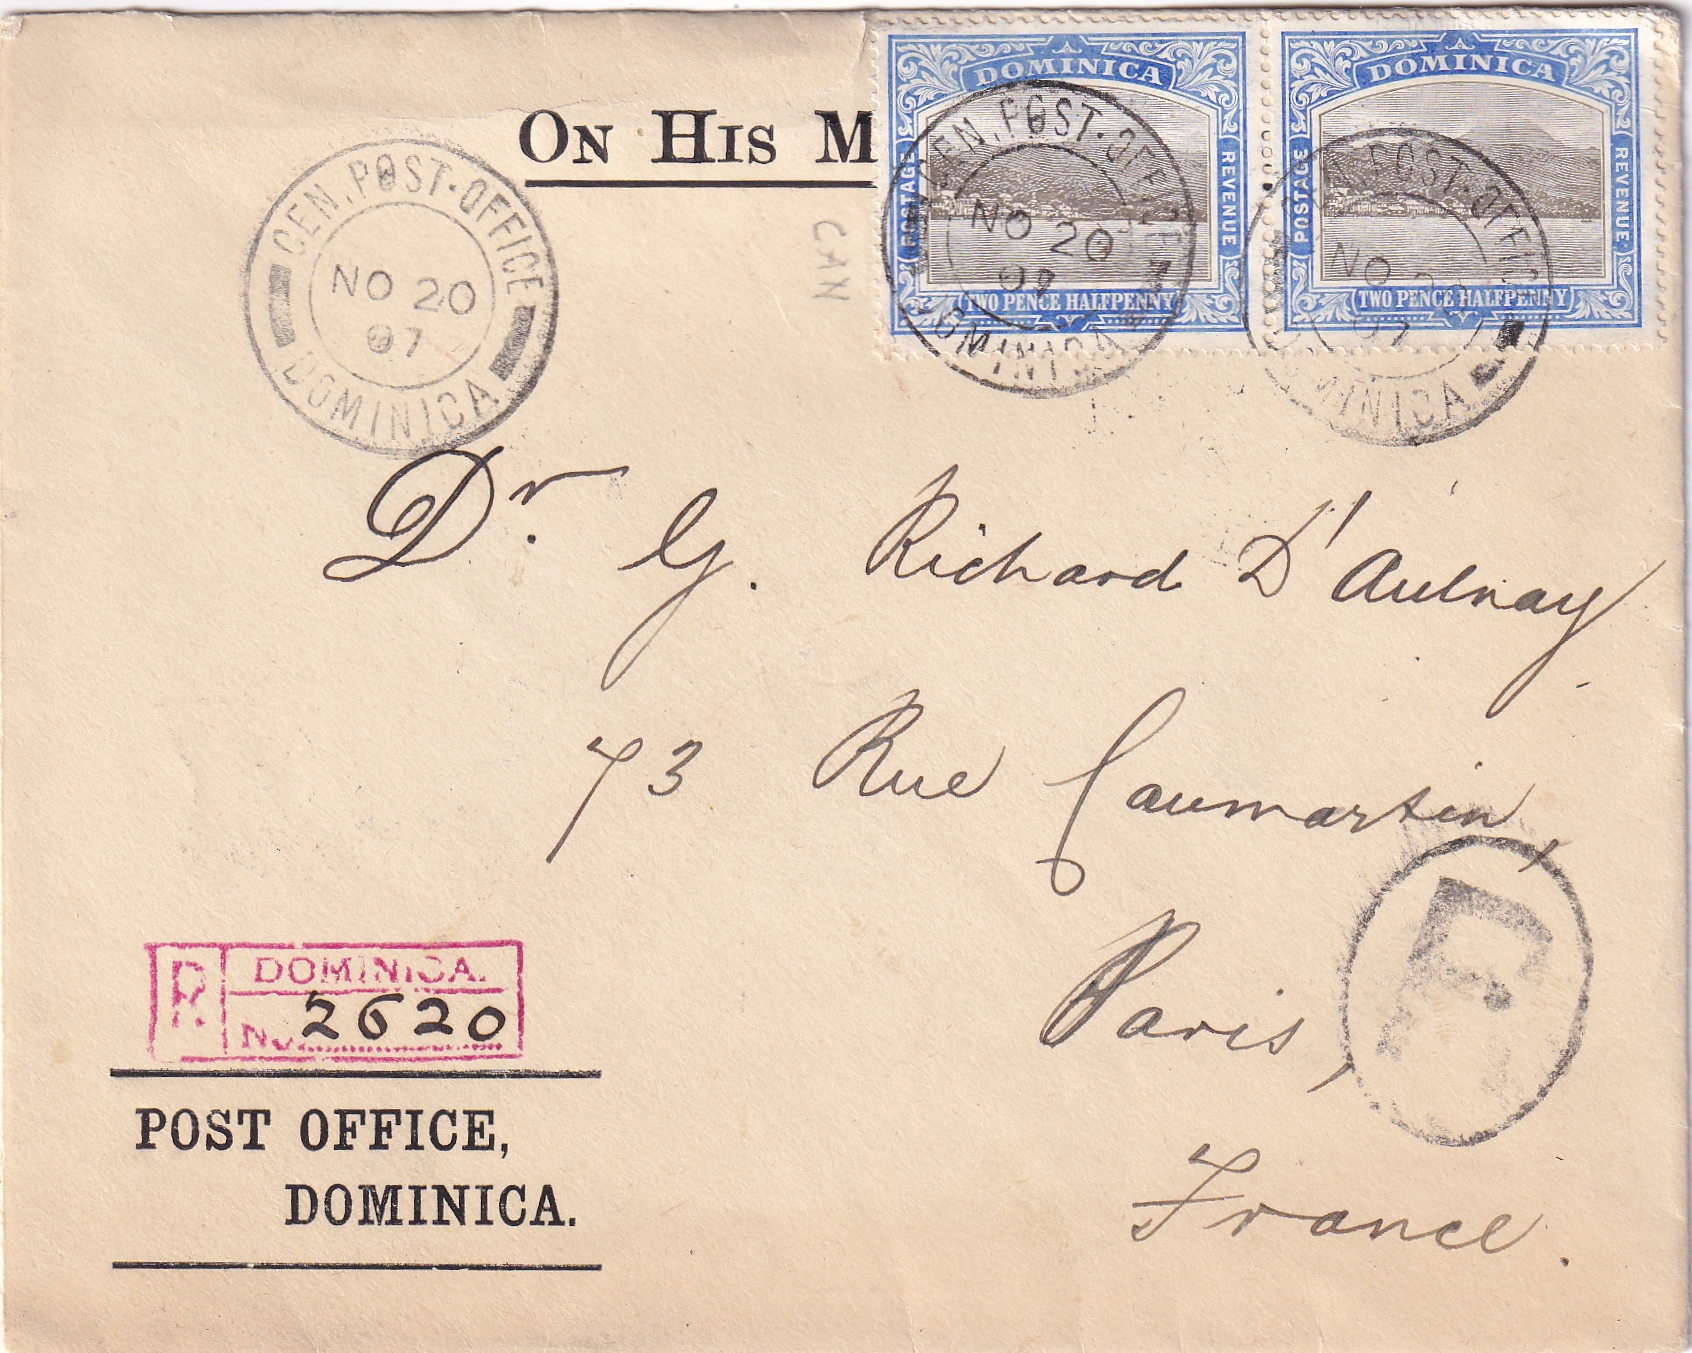 ON HIS M
DOMINICA
POSTAGE
REVENUE
TWO PENCE HALFPENNY
DOMINICA
POSTAGE
REVENUE
TWO PENCE HALFPENNY
GEN. POST-OFFICE
NO 20
07
DOMINICA
GEN. POST-OFFICE
NO 20
07
DOMINICA
GEN. POST-OFFICE
NO 20
07
DOMINICA
CAN
Dr. G. Richard D'Aulnay
73 Rue Caumartin,
Paris,
France.
R
DOMINICA.
No 2620
POST OFFICE,
DOMINICA.